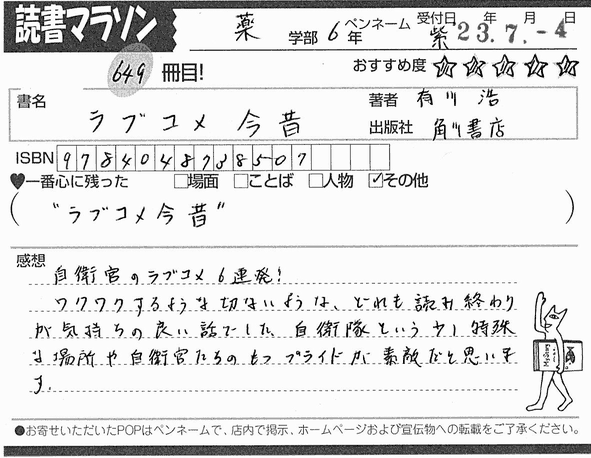 読書マラソン
薬 学部 6年 ペンネーム 紫 受付日 年 月 日
23.7.-4
649 冊目!
おすすめ度 ☆☆☆☆☆
書名 ラブコメ今昔
著者 有川 浩
出版社 角川書店
ISBN 9784048738507
♥一番心に残った □場面 □ことば □人物 ☑その他
( "ラブコメ今昔" )
感想
自衛官のラブコメ6連発!
ワクワクするような切ないような、どれも読み終わり
が気持ちの良い話でした。自衛隊という少し特殊
な場所や自衛官たちのもつプライドが素敵だと思いま
す。
●お寄せいただいたPOPはペンネームで、店内で掲示、ホームページおよび宣伝物への転載をご了承ください。